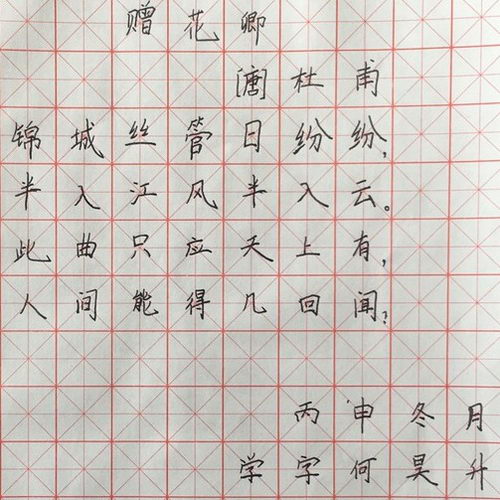 赠花卿
[唐]杜甫
锦城丝管日纷纷,
半入江风半入云。
此曲只应天上有,
人间能得几回闻?
丙申冬月
学字何昊升